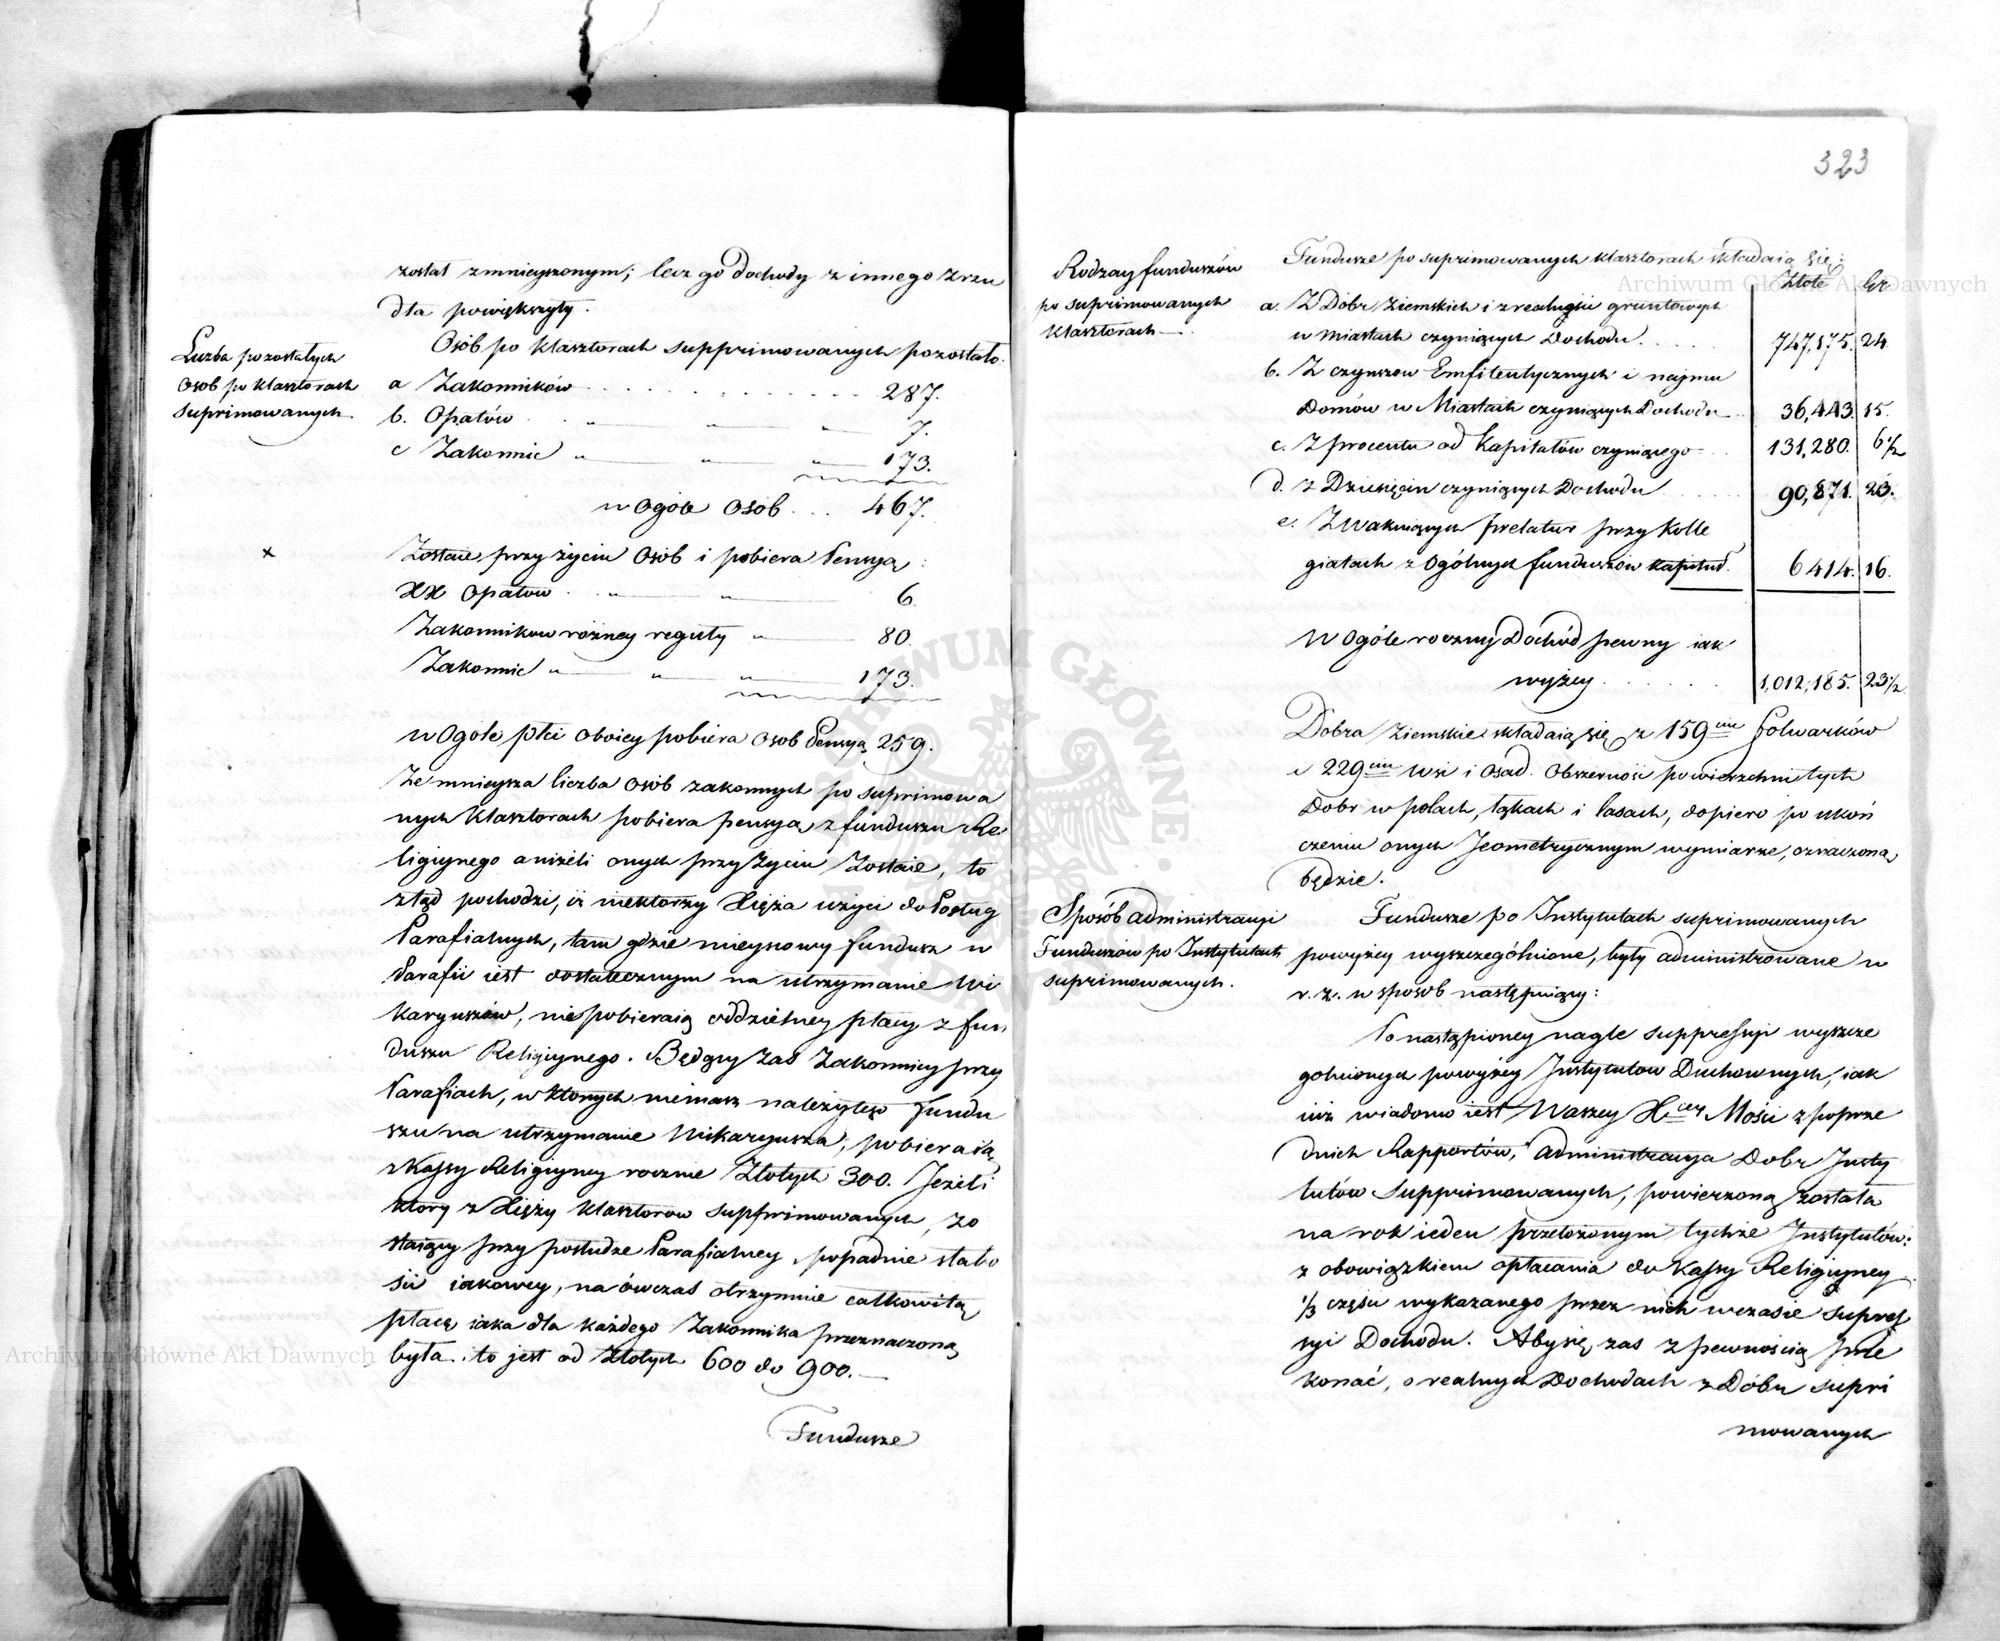 został zmnieyszonym; lecz go dochody z innego zrzu
dła powiększyły.
Liczba pozostałych
osob po klasztorach
suprimowanych
Osób po klasztorach supprimowanych pozostało.
a Zakonników . . . . . . . . . . 287.
b. Opatów . . „ „ „ 7.
c Zakonnic „ „ „ 173.
w ogóle osób . . . 467.
×
Zostaie przy życiu osób i pobiera Pensyą:
XX Opatow . . „ „ 6.
Zakonnikow rożney reguły „ 80.
Zakonnic „ „ „ 173.
w Ogole płci oboiey pobiera osob Pensyą 259.
Że mnieysza liczba osób zakonnych po suprimowa
nych klasztorach pobiera pensyą z funduszu Re
ligiynego aniżeli onych przy życiu zostaie, to
ztąd pochodzi, iż niektorzy Xięża użyci do Posług
Parafialnych, tam gdzie mieyscowy fundusz w
Parafii iest dostatecznym na utrzymanie Wi
karyuszów, nie pobieraią oddzielney płacy z fun
duszu Religiynego. Będący zaś Zakonnicy przy
Parafiach, w ktorych niemasz należytego fundu
szu na utrzymanie Wikaryusza, pobieraią
z Kassy Religiyney rocznie Złotych 300. Jeżeli
ktory z Xięży klasztorow supprimowanych, zo
staiący przy posłudze Parafialney, popadnie słabo
ści iakowey, na ówczas otrzymuie całkowitą
płacę iaka dla każdego Zakonnika przeznaczoną
była. to jest od Złotych 600 do 900.—
Fundusze
323
Rodzay funduszów
po suprimowanych
klasztorach —.
Fundusze po suprimowanych klasztorach składaią się:
Złote Gr
a. Z Dobr ziemskich i z realności gruntowych
w miastach czyniących Dochodu . . . . . 747,175. 24
b. Z czynszow Emfiteutycznych i naymu
Domów w Miastach czyniących Dochodu 36,443. 15.
c. Z procentu od Kapitałów czyniącego . . 131,280. 6 1/2
d. z Dziesięcin czyniących Dochodu . . . . 90,871. 23.
e. Z wakuiących prelatur przy Kolle
giatach z Ogólnych funduszow kapituł. 6 414. 16.
W Ogóle roczny Dochód pewny iak
wyżey . . . . . . 1,012,185. 23 1/2
Dobra Ziemskie składaią się z 159ciu folwarków
i 229ciu wsi i osad. Obszerność powierzchni tych
Dobr w polach, łąkach i lasach, dopiero po ukoń
czeniu onych Jeometrycznym wymiarze, oznaczoną
będzie.
Sposób administracyi
Funduszów po Instytutach
suprimowanych.
Fundusze po Instytutach suprimowanych
powyżey wyszczególnione, były administrowane w
r. z. w sposob następuiący:
Po nastąpioney nagle suppressyi wyszcze
gólnionych powyżey Instytutow Duchownych, iak
iuż wiadomo iest Waszey Xcey Mości z poprze
dnich Rapportów, administracya Dobr Insty
tutów Supprimowanych, powierzoną została
na rok ieden przełożonym tychże Instytutów:
z obowiązkiem opłacania do Kassy Religiyney
1/3 części wykazanego przez nich w czasie supres
syi Dochodu. Aby się zaś z pewnością prze
konać, o realnych Dochodach z Dóbr supri
mowanych
Archiwum Główne Akt Dawnych
Archiwum Główne Akt Dawnych